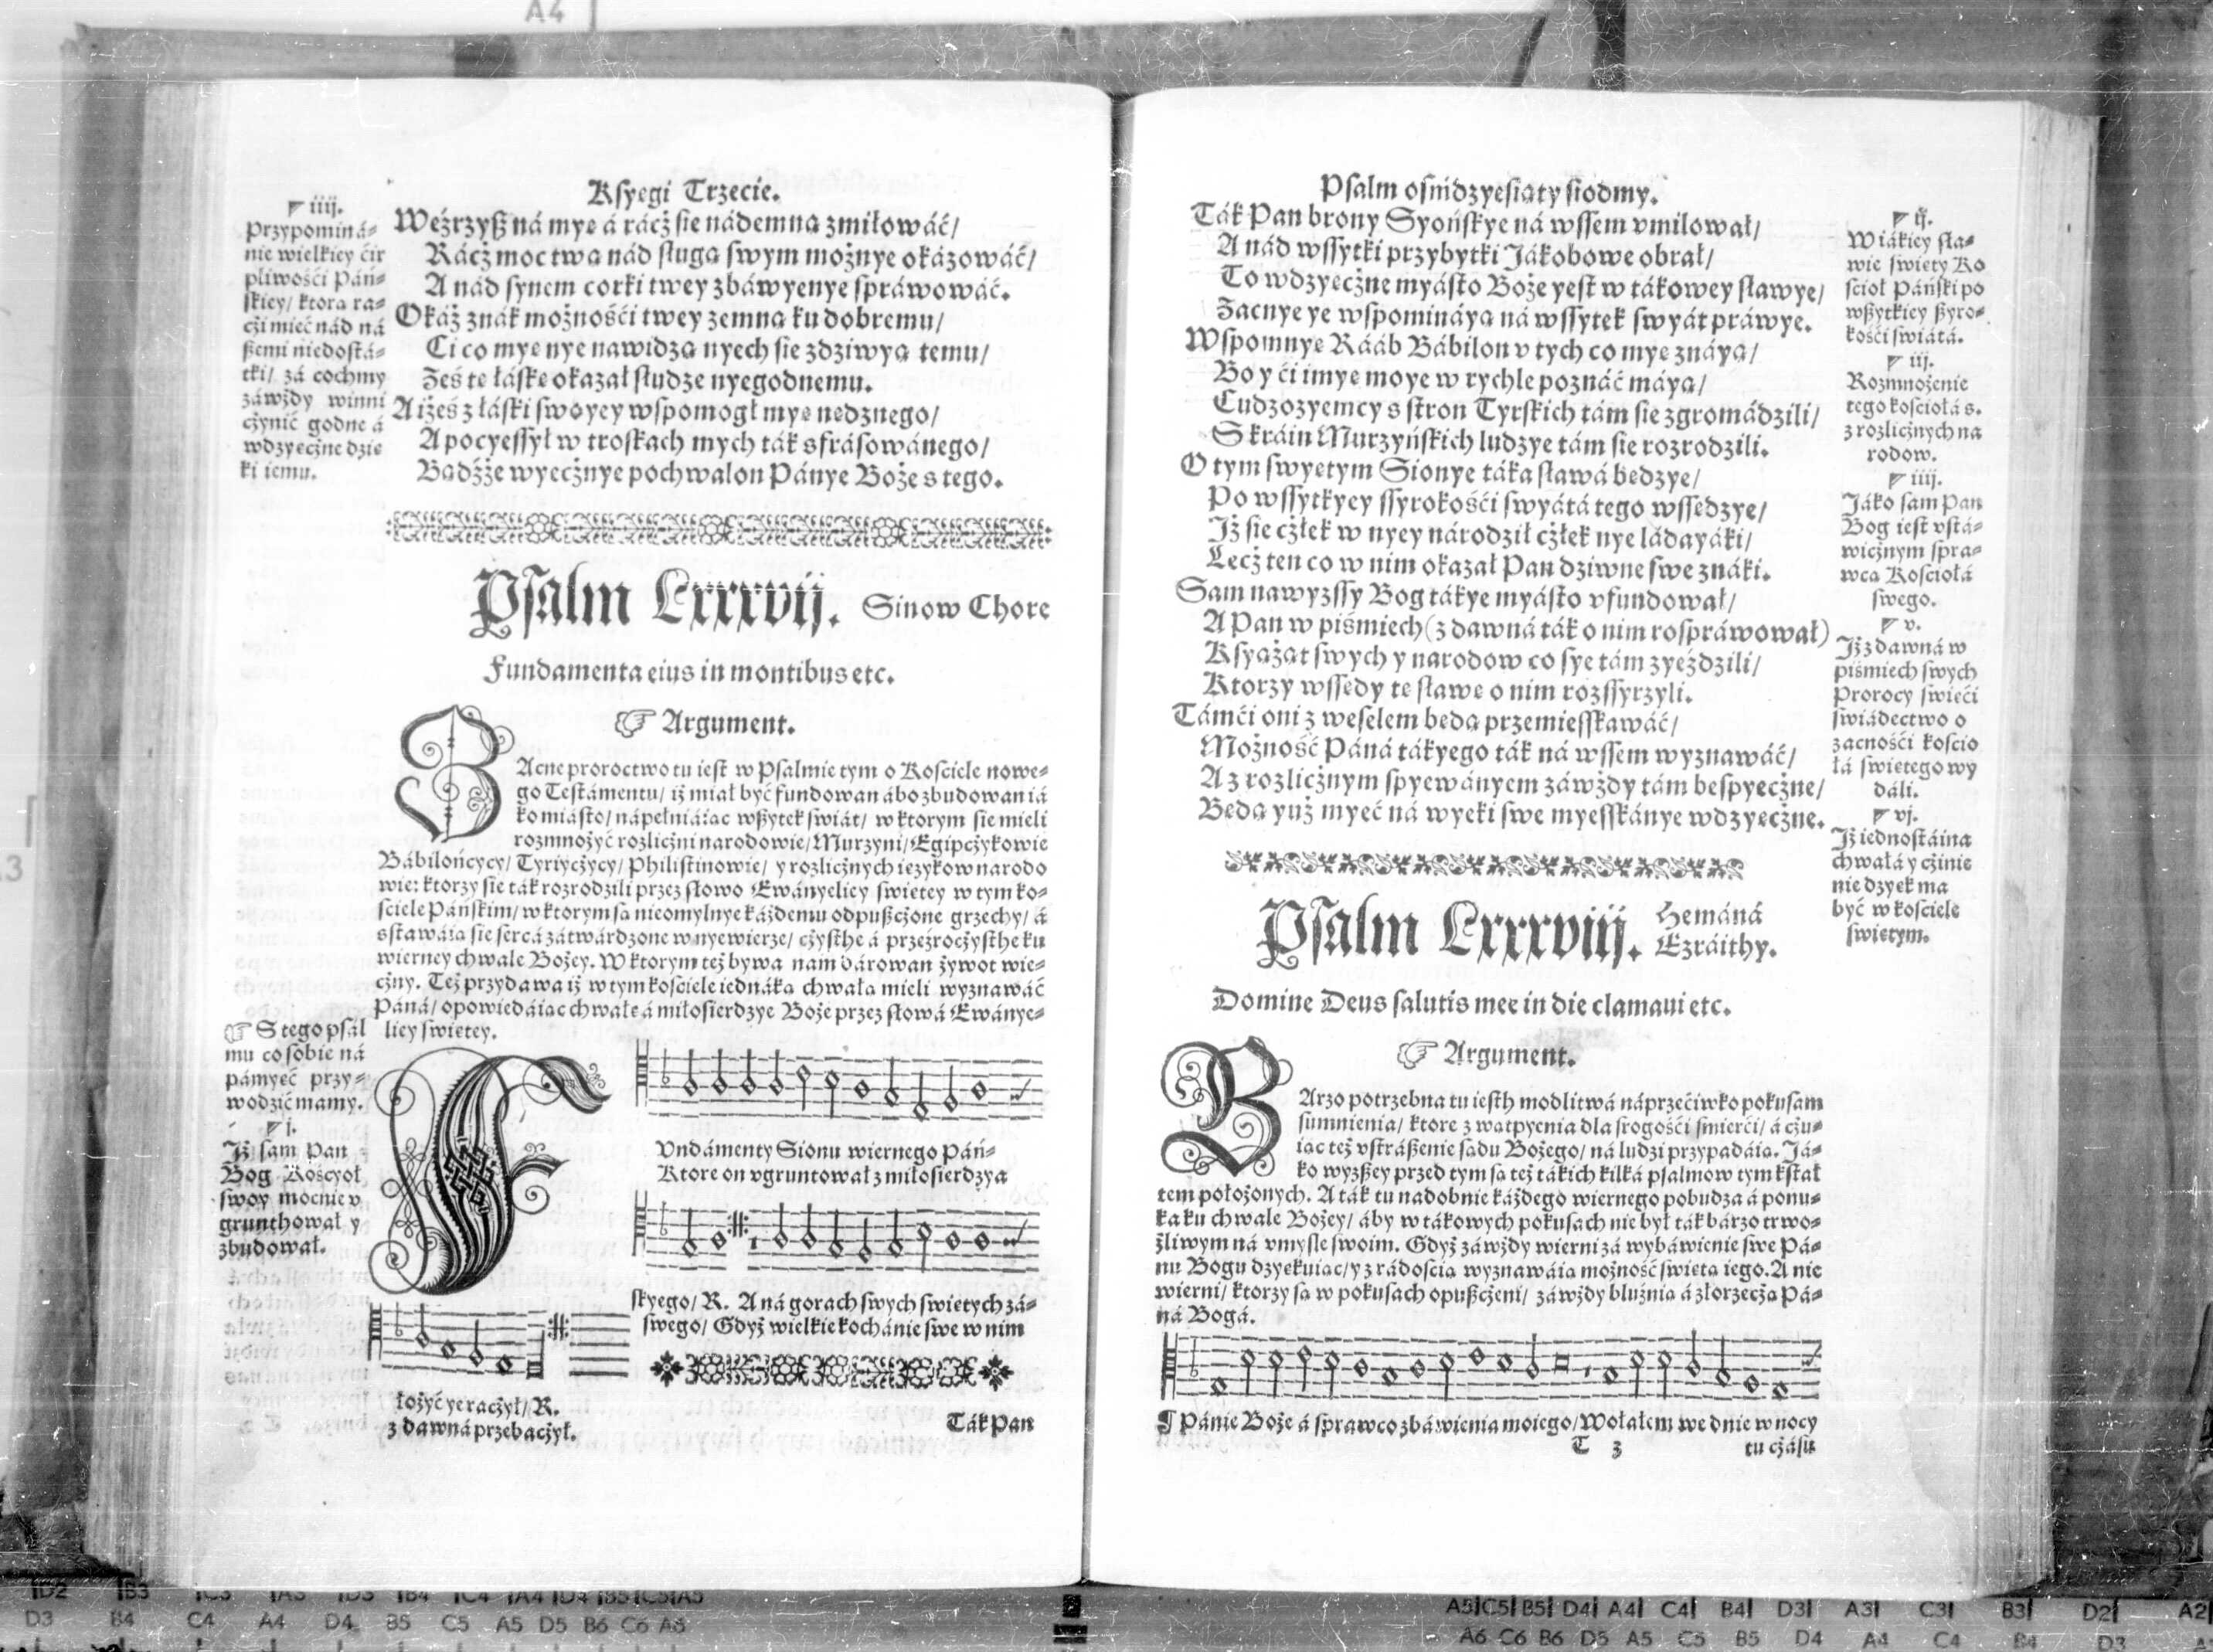 A4
Ksyęgi Trzecie.
iiij.
Przypominá-
nie wielkiey ćir
pliwośći Páń-
skiey/ ktorą ra-
cżi mieć nád ná
ßemi niedostá-
tki/ zá co chmy
záwżdy winni
cżynić godne á
wdzyęcżne dzię
ki iemu.
Weźrzyß ná mye á rácż sie nádemną zmiłowáć/
Rácż moc twą nád sługą swym możnye okázowáć/
A nád synem corki twey zbáwyenye spráwowáć.
Okáż znák możnośći twey zemną ku dobremu/
Ci co mye nye nawidzą nyech sie zdziwyą temu/
Ześ tę łáskę okazał słudze nyegodnemu.
A iżeś z łáski swoyey wspomogł mye nędznego/
A pocyessył w troskach mych ták sfrásowánego/
Bądźże wyecżnye pochwalon Pánye Boże s tego.
Psalm Lxxxvij. Sinow Chore
Fundamenta eius in montibus etc.
Argument.
ZAcne proroctwo tu iest w Psalmie tym o Kosciele nowe-
go Testámentu/ iż miał być fundowan ábo zbudowan iá
ko miásto/ nápełniáiąc wßytek swiát/ w ktorym się mieli
rozmnożyć rozlicżni narodowie/ Murzyni/ Egipcżykowie
Bábilońcycy/ Tyriycżycy/ Philistinowie/ y rozlicżnych ięzykow narodo
wie: ktorzy się ták rozrodzili przez słowo Ewányeliey swiętey w tym ko-
sciele Páńskim/ w ktorym są nieomylnye káżdemu odpußcżone grzechy/ á
sstawáią się sercá zátwárdzone w nyewierze/ cżysthe á przeźrocżysthe ku
wierney chwale Bożey. W ktorym też bywa nam dárowan żywot wie-
cżny. Też przydawa iż w tym kosciele iednáką chwałą mieli wyznawáć
Páná/ opowiedáiąc chwałę á miłosierdzye Boże przez słowá Ewánye-
liey swiętey.
S tego psal
mu co sobie ná
pámyęć przy-
wodzić mamy.
j.
Jż sam Pan
Bog Kośćyoł
swoy mocnie v
grunthował y
zbudował.
FVndámenty Sionu wiernego Páń-
Ktore on vgruntował z miłosierdzya
skyego/ R. A ná gorach swych swiętych zá-
swego/ Gdyż wielkie kochánie swe w nim
łożyć ye racżył/ R.
z dawná przebacżył.
Ták Pan
Psalm ośmdzyesiąty siodmy.
Ták Pan brony Syońskye ná wssem vmilował/
A nád wssytki przybytki Jákobowe obrał/
To wdzyęcżne myásto Boże yest w tákowey sławye/
Zacnye ye wspomináyą ná wssytek swyát práwye.
Wspomnye Rááb Bábilon v tych co mye znáyą/
Bo y ći imye moye w rychle poznáć máyą/
Cudzozyemcy s stron Tyrskich tám sie zgromádzili/
S kráin Murzyńskich ludzye tám sie rozrodzili.
O tym swyętym Sionye táka sławá będzye/
Po wssytkyey ssyrokośći swyátá tego wssędzye/
Jż sie cżłek w nyey národził cżłek nye ládayáki/
Lecż ten co w nim okazał Pan dziwne swe znáki.
Sam nawyzssy Bog tákye myásto vfundował/
A Pan w piśmiech (z dawná ták o nim rospráwował)
Ksyążąt swych y narodow co sye tám zyeździli/
Ktorzy wssędy tę sławę o nim rozssyrzyli.
Támći oni z weselem będą przemiesskawáć/
Możność Páná tákyego ták ná wssem wyznawáć/
A z rozlicżnym spyewányem záwżdy tám bespyecżne/
Będą yuż myeć ná wyeki swe myesskánye wdzyęcżne.
ij.
W iákiey sła-
wie swięty Ko
scioł Páński po
wßytkiey ßyro-
kośći swiátá.
iij.
Rozmnożenie
tego kosciołá s.
z rozlicżnych na
rodow.
iiij.
Jáko sam Pan
Bog iest vstá-
wicżnym spra-
wcą Kosciołá
swego.
v.
Jż z dawná w
piśmiech swych
Prorocy swięći
swiádectwo o
zacnośći koscio
łá swiętego wy
dáli.
vj.
Jż iednostáina
chwałá y cżinie
nie dzyęk ma
być w kosciele
swiętym.
Psalm Lxxxviij. Hemáná
Ezráithy.
Domine Deus salutis mee in die clamaui etc.
Argument.
BArzo potrzebna tu iesth modlitwá náprzećiwko pokusam
sumnienia/ ktore z wątpyenia dla srogośći śmierći/ á cżu-
iąc też vstráßenie sądu Bożego/ ná ludzi przypadáią. Já-
ko wyzßey przed tym są też tákich kilká psalmow tym kstał
tem położonych. A ták tu nadobnie káżdego wiernego pobudza á ponu-
ka ku chwale Bożey/ áby w tákowych pokusach nie był ták bárzo trwo-
żliwym ná vmyśle swoim. Gdyż záwżdy wierni zá wybáwienie swe Pá-
nu Bogu dzyękuiąc/ y z rádoscią wyznawáią możność swiętą iego. A nie
wierni/ ktorzy są w pokusach opußcżeni/ záwżdy bluźnią á złorzecżą Pá-
ná Bogá.
¶ Pánie Boże á sprawco zbáwienia moiego/ Wołałem we dnie w nocy
T 3
tu cżásu